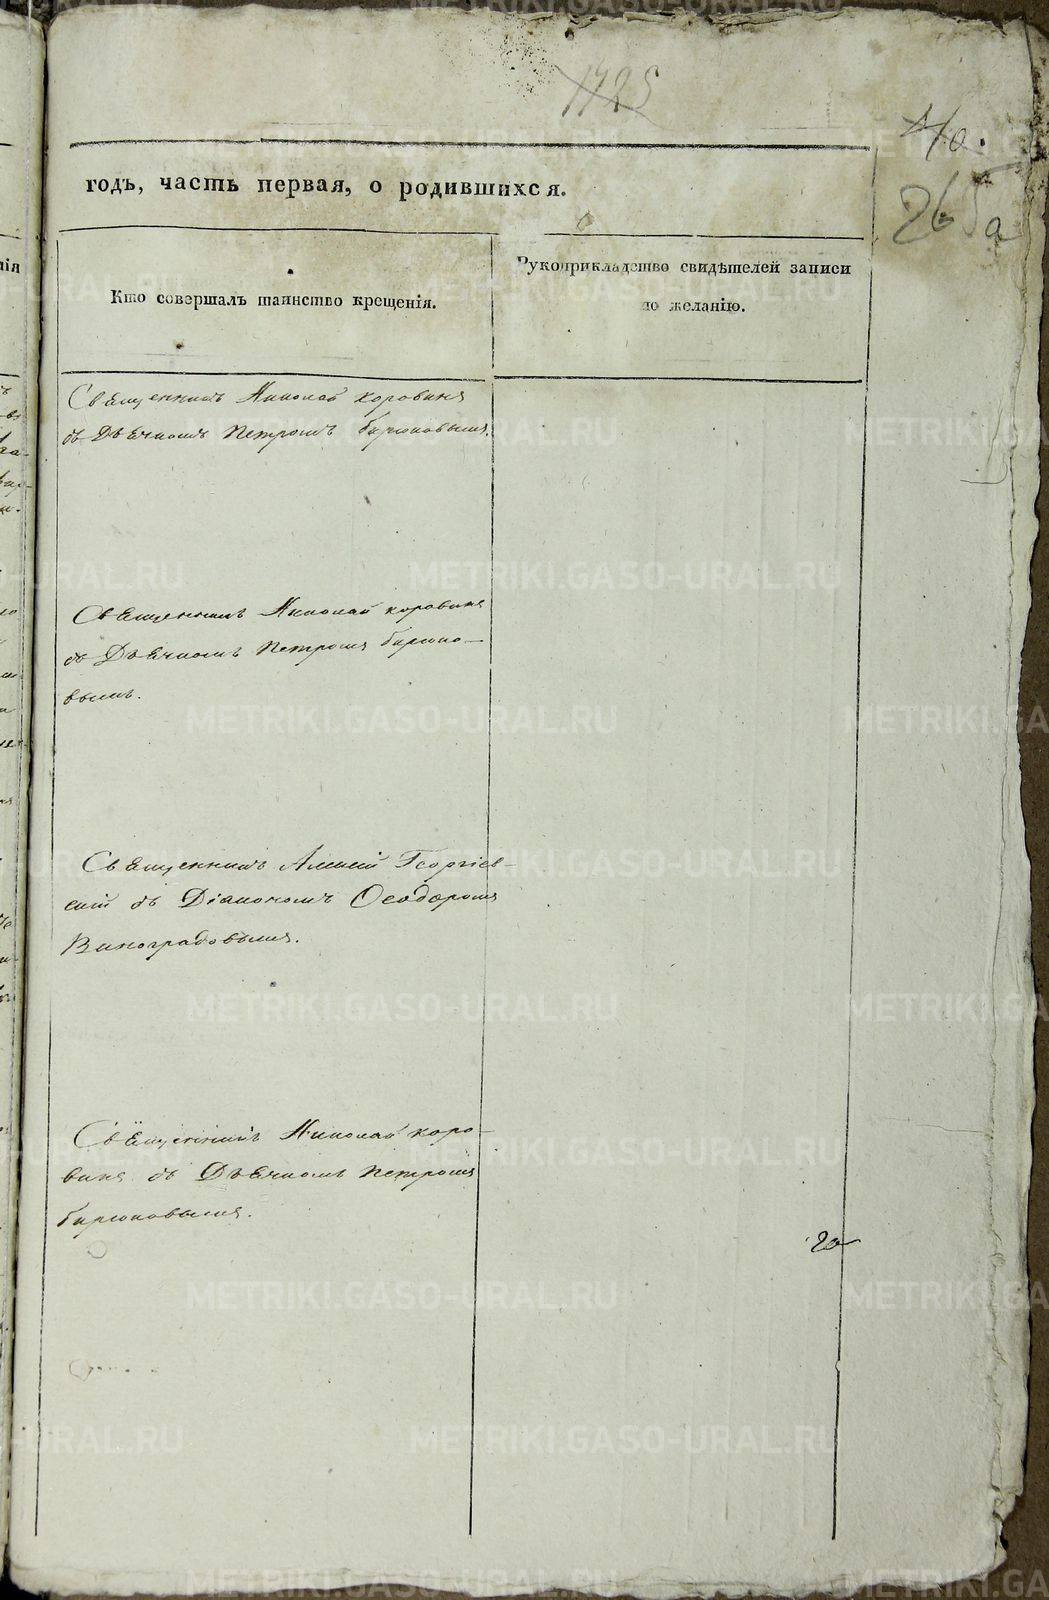 1725
40.
265а
годъ, часть первая, о родившихся.
Кто совершалъ таинство крещенія.
Рукоприкладство свидѣтелей записи
по желанію.
Священникъ Николай коровинъ
съ Дьячкомъ Петромъ бирюковымъ.
Священникъ Николай коровинъ
съ Дьячкомъ Петромъ бирюко-
вымъ.
Священникъ Георгіев-
скій съ Діакономъ Ѳеодоромъ
Виноградовымъ.
Священникъ Николай коро-
винъ съ Дьячкомъ Петромъ
бирюковымъ.
METRIKI.GASO-URAL.RU